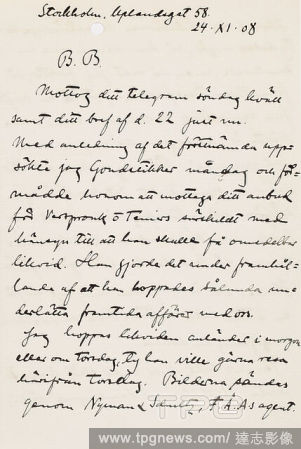 Stockholm. Uplandsgat 58.
24·XI·08
B. B.
Mottog ditt telegram söndag kväll
samt ditt bref af d. 22 just nu.
Med anledning af det förstnämda upp-
sökte jag Goudstikker måndag och för-
mådde honom att mottaga ditt anbud
för Verspronk o Teniers särskildt med
hänsyn till att han skulle få omedelbar
likvid. Han gjorde det under framhål-
lande af att han hoppades sålunda un-
derlätta framtida affärer med oss.
Jag hoppas likviden anländer i morgon
eller om torsdag, ty han ville gärna resa
härifrån torsdag. Bilderna sändes
genom Nyman & Schultz, F.Å.A:s agent.
TPG
www.tpgnews.com/達志影像